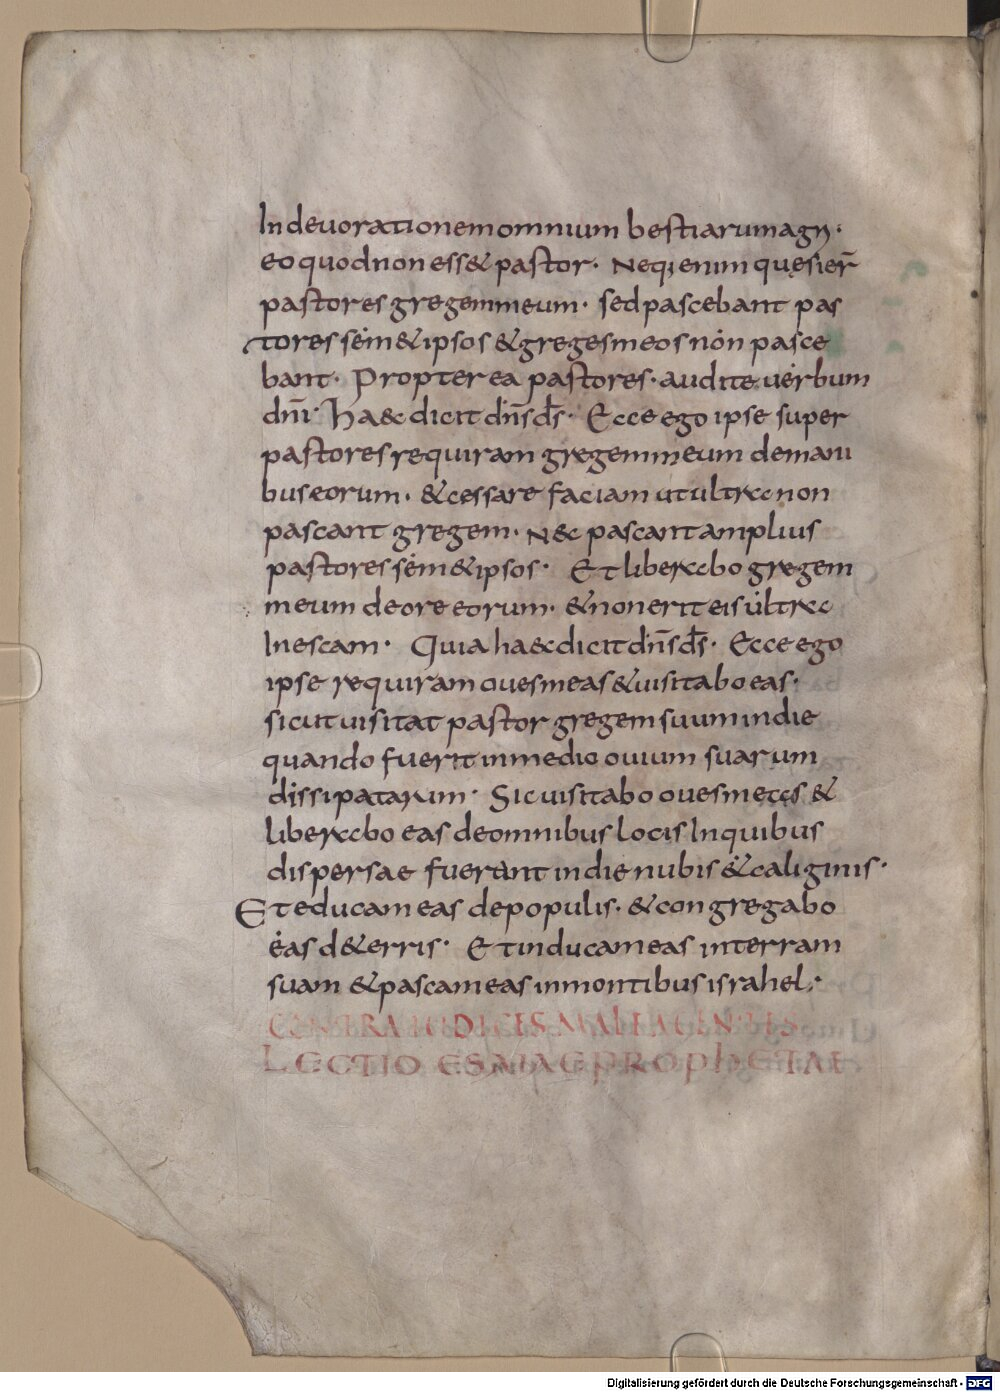 In deuorationem omnium bestiarum agri·
eo quod non ess& pastor· Neq; enim quesier̄
pastores gregem meum· sed pascebant pas
tores sem&ipsos & greges meos non pasce
bant· Propterea pastores· audite uerbum
dn̄i· Haec dicit dn̄s ds̄· Ecce ego ipse super
pastores requiram gregem meum de manu
bus eorum· & cessare faciam ut ultra non
pascant gregem· N&c pascant amplius
pastores sem&ipsos· Et liberabo gregem
meum de ore eorum· & non erit eis ultra
In escam· Quia haec dicit dn̄s ds̄· Ecce ego
ipse requiram oues meas & uisitabo eas·
sicut uisitat pastor gregem suum in die
quando fuerit in medio ouium suarum
dissipatarum· Sic uisitabo oues meas &
liberabo eas de omnibus locis In quibus
dispersae fuerant in die nubis & caliginis·
Et educam eas de populis· & congregabo
eas de t&erris· Et inducam eas in terram
suam & pascam eas in montibus israhel·
CONTRA IUDICES MALE AGENTES
LECTIO ESAIAE PROPHETAE
Digitalisierung gefördert durch die Deutsche Forschungsgemeinschaft - DFG